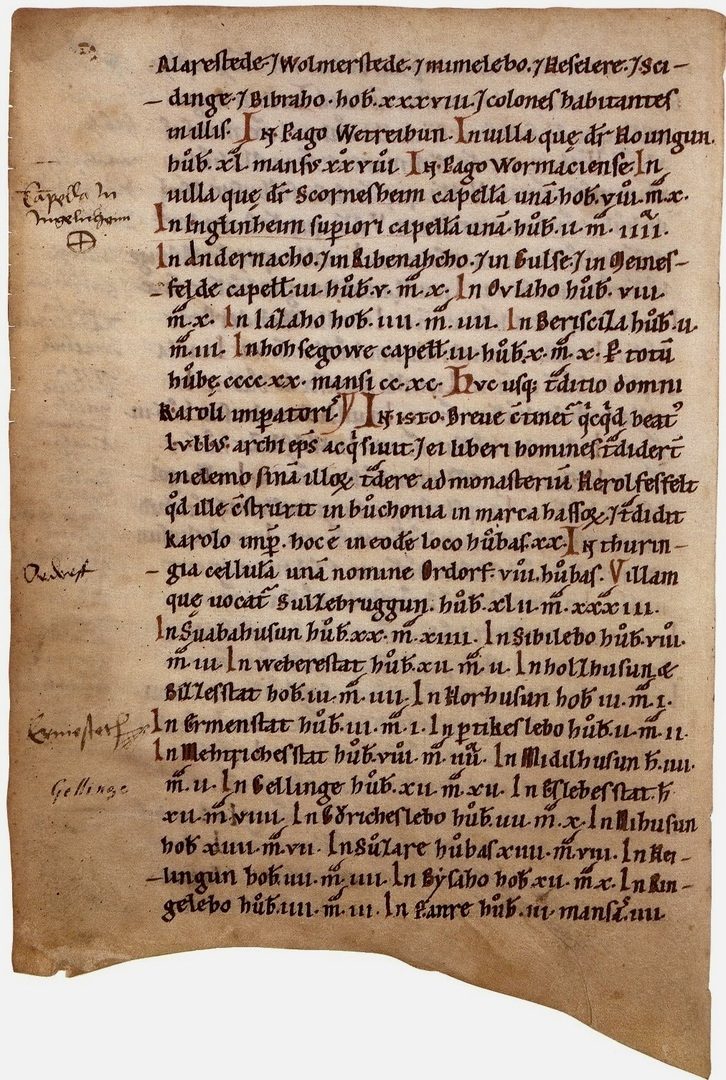 Alarestede ⁊ Wolmerstede ⁊ mimelebo ⁊ Heselere ⁊ Sci-
dinge ⁊ Bibraho. hob. xxxviii. ⁊ colones habitantes
in illis. In Pago Wetreibun. In uilla que dr̄ Houngun.
hůb. xl. mansus xxviii. In Pago Wormaciense. In
uilla que dr̄ Scornesheim capellā unā. hob. viii. m̄. x.
In Englinheim superiori capellā unā. hůb. ii. m̄. iiii.
In Andernacho. ⁊ in Ribenahcho. ⁊ in Gulse. ⁊ in Meines-
felde capell̄. iii. hůb. v. m̄. x. In Ovlaho hůb. viii.
m̄. x. In lālaho hob. iiii. m̄. iiii. In Beriscila hůb. ii.
m̄. iii. In hohsegowe capell̄. iii. hůb. x. m̄. x. P̄ totū
hůbe cccc. xx. mansi cc. xc. Huc usq; t̄ditio domni
karoli imꝑatoris. In isto Breue c̄tinet̄ qͥcqͥd beatꝰ
lullus archiep̄s acqͥsiuit. ⁊ ei liberi homines t̄didert̄
in elemosinā illoꝝ t̄dere ad monasteriū Herolfesfelt
qd̄ ille c̄struxit in bůchonia in marca hassoꝝ ⁊ t̄didit
karolo imp̄. hoc ē in eodē loco hůbas. xx. In thurin-
gia cellulā unā nomine Ordorf. viii. hůbas. Villam
que uocat̄ Sulzebruggun. hůb. xlii. m̄. xxxiii.
In Suabahusun hůb. xx. m̄. xiiii. In Sibilebo hůb. viii.
m̄. iii. In weberestat hůb. xii. m̄. ii. In holzhusun &
Billesstat hob. iii. m̄. iiii. In Horhusun hob. iii. m̄. i.
In Ermenstat hůb. iii. m̄. i. In ꝑtikeslebo hůb. ii. m̄. ii.
In Mehtrichesstat hůb. viii. m̄. In Midilhusun h̄. iiii.
m̄. ii. In Gellinge hůb. xii. m̄. xv. In Eslebesstat. h̄
xii. m̄. viiii. In hůb. m̄. x. In Nihusun
hob. xiiii. m̄. vii. In Sůlare hůbas xiiii. m̄. viii. In Hei-
lingun hob. iiii. m̄. iiii. In Bysaho hob. xii. m̄. x. In Rin-
gelebo hůb. iiii. m̄. iii. In Panre hůb. iii. mansā. iiii.
Capella In
Ingelnheim
Ordorff
Gellinge